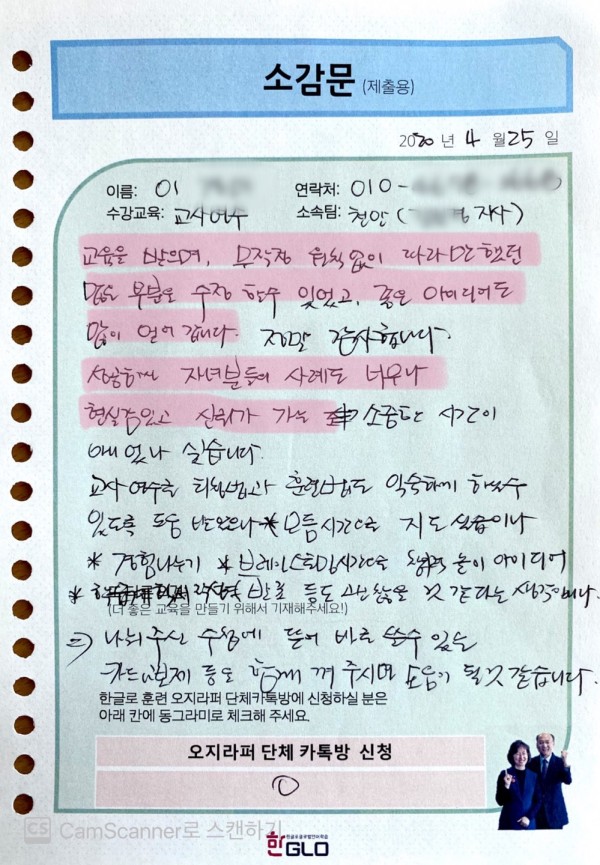 소감문 (제출용)
2020 년 4 월 25 일
이름: 이
연락처: 010 -
수강교육: 교사연수
소속팀: 천안 ( 지사)
교육을 받으며, 무작정 원칙없이 따라만 했던
많은 부분을 수정 할수 있었고, 좋은 아이디어도
많이 얻어 갑니다. 정말 감사합니다.
자녀분들의 사례도 너무나
현실감있고 신뢰가 가는 소중한 시간이
아니었나 싶습니다.
교사 연수측 훈련법도 익숙하게 할수
있도록 도움 받았으나 * 모듬시간에는 지도 실습이나
* 경험나누기 * 브레인스토밍시간에는 놀이 아이디어
* 발표 등도 괜찮을 것 같다는 생각입니다.
(더 좋은 교육을 만들기 위해서 기재해주세요!)
=> 나눠주신 수첩에 들어 바로 쓸수 있는
카드 등도 함께 껴 주시면 도움이 될것 같습니다.
한글로 훈련 오지라퍼 단체카톡방에 신청하실 분은
아래 칸에 동그라미로 체크해 주세요.
오지라퍼 단체 카톡방 신청
O
CS CamScanner로 스캔하기
한GLO